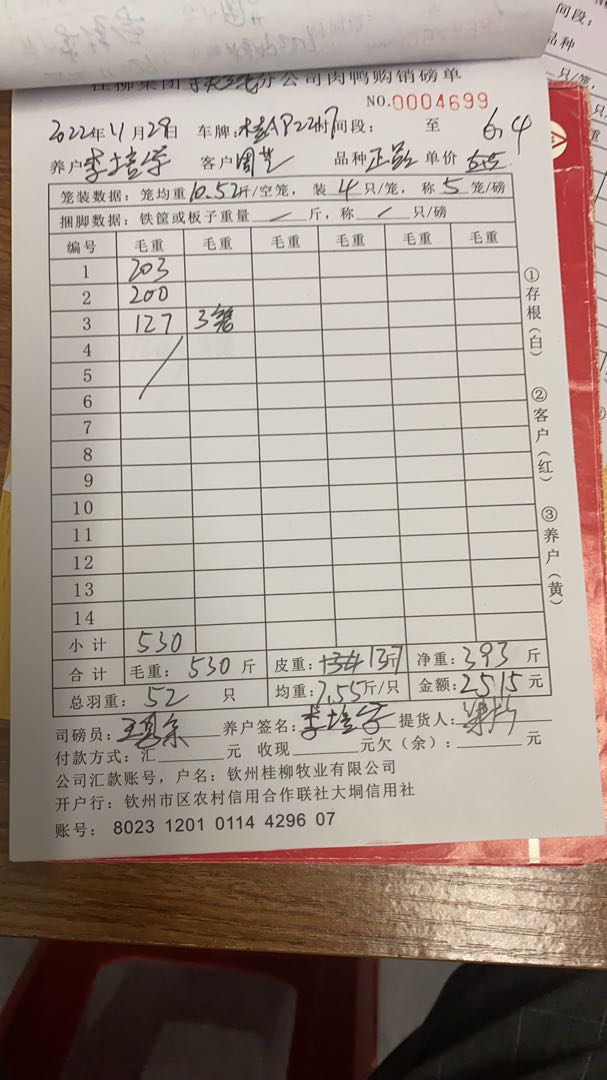 桂柳集团 分公司肉鸭购销磅单
NO.0004699
2022年11月29日 车牌: 时间段: 至
6.4
养户李培学 客户周芝 品种正品 单价
笼装数据: 笼均重10.52斤/空笼, 装4只/笼, 称5笼/磅
捆脚数据: 铁筐或板子重量/斤, 称/只/磅
编号 毛重 毛重 毛重 毛重 毛重 毛重
1 203
2 200
3 127 3笼
4
5
6
7
8
9
10
11
12
13
14
小计 530
合计 毛重: 530斤 皮重: 137 净重: 393斤
总羽重: 52只 均重: 7.55斤/只 金额: 2515元
司磅员: 养户签名: 李培学 提货人:
付款方式: 汇 元 收现 元欠(余): 元
公司汇款账号, 户名: 钦州桂柳牧业有限公司
开户行: 钦州市区农村信用合作联社大垌信用社
账号: 8023 1201 0114 4296 07
①存根(白)
②客户(红)
③养户(黄)
间段:
品种
只/笼,